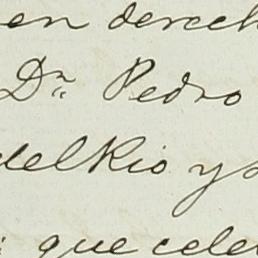 en derech
Dn. Pedro
del Rio y s
que cele